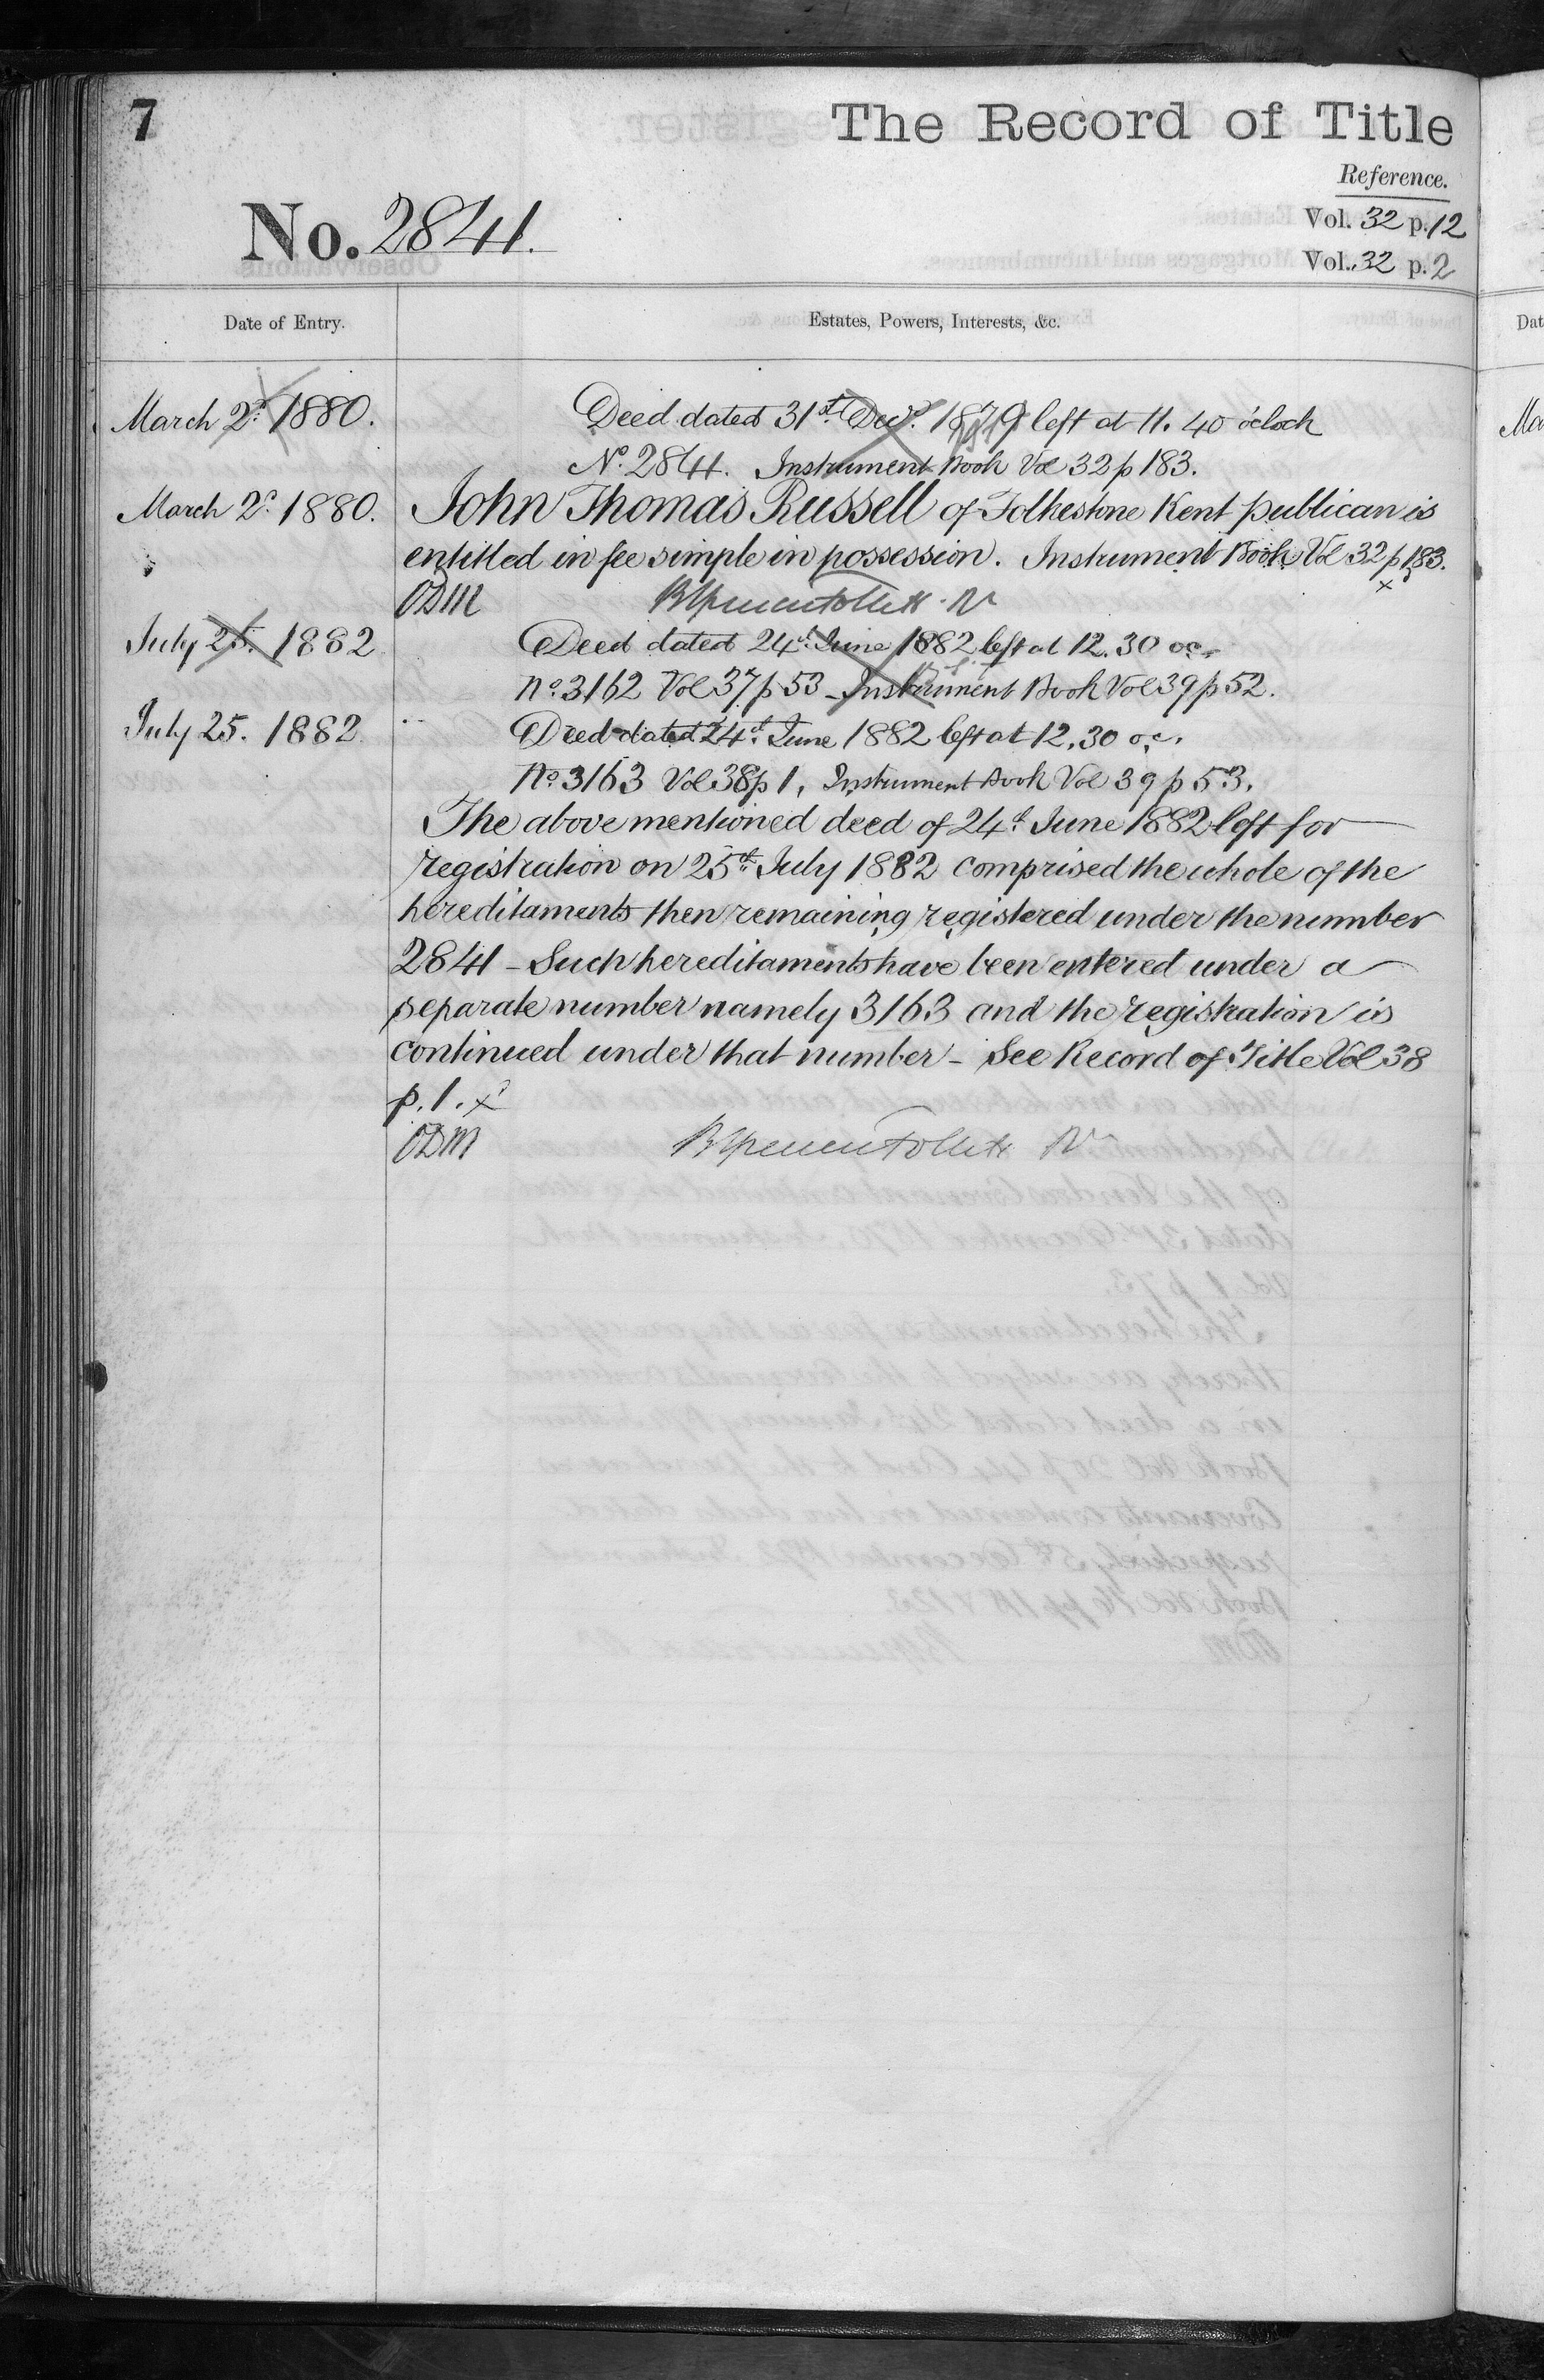 7
The Record of Title
Reference.
No. 2841.
Vol. 32 p. 12
Vol. 32 p. 2
Date of Entry.
Estates, Powers, Interests, &c.
March 2d. 1880. Deed dated 31st Decr. 1879 left at 11. 40 o'clock
No. 2841. Instrument Book Vol 32 p 183.
March 2d. 1880. John Thomas Russell of Folkestone Kent publican is
entitled in fee simple in possession. Instrument Book Vol 32 p 183.
ODM
July 25. 1882 Deed dated 24th June 1882 left at 12. 30 oc.
No. 3162 Vol 37 p 53 - Instrument Book Vol 39 p 52.
July 25. 1882 Deed dated 24th June 1882 left at 12. 30 oc.
No. 3163 Vol 38 p 1, Instrument Book Vol 39 p 53.
The above mentioned deed of 24th June 1882 left for
registration on 25th July 1882 comprised the whole of the
hereditaments then remaining registered under the number
2841 - Such hereditaments have been entered under a
separate number namely 3163 and the registration is
continued under that number - See Record of Title Vol 38
p. 1. x
ODM
Dat